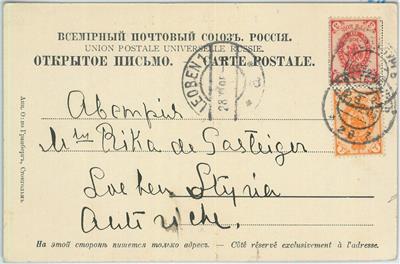 ВСЕМІРНЫЙ ПОЧТОВЫЙ СОЮЗЪ. РОССІЯ.
UNION POSTALE UNIVERSELLE RUSSIE.
ОТКРЫТОЕ ПИСЬМО. — CARTE POSTALE.
LEOBEN 1
Австрія
Rika de Gasteiger
Loeben Styria
Autriche.
На этой сторонѣ пишется только адресъ. — Côté réservé exclusivement à l'adresse.
Акц. О-во Гранбергъ, Стокгольмъ